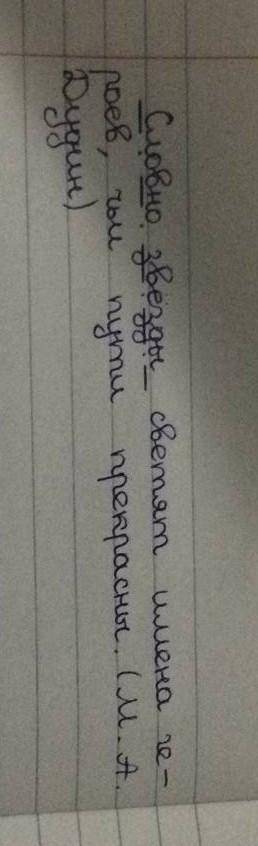 Словно звёзды светят имена ге-
роев, чьи пути прекрасны. (М. А.
Дудин)